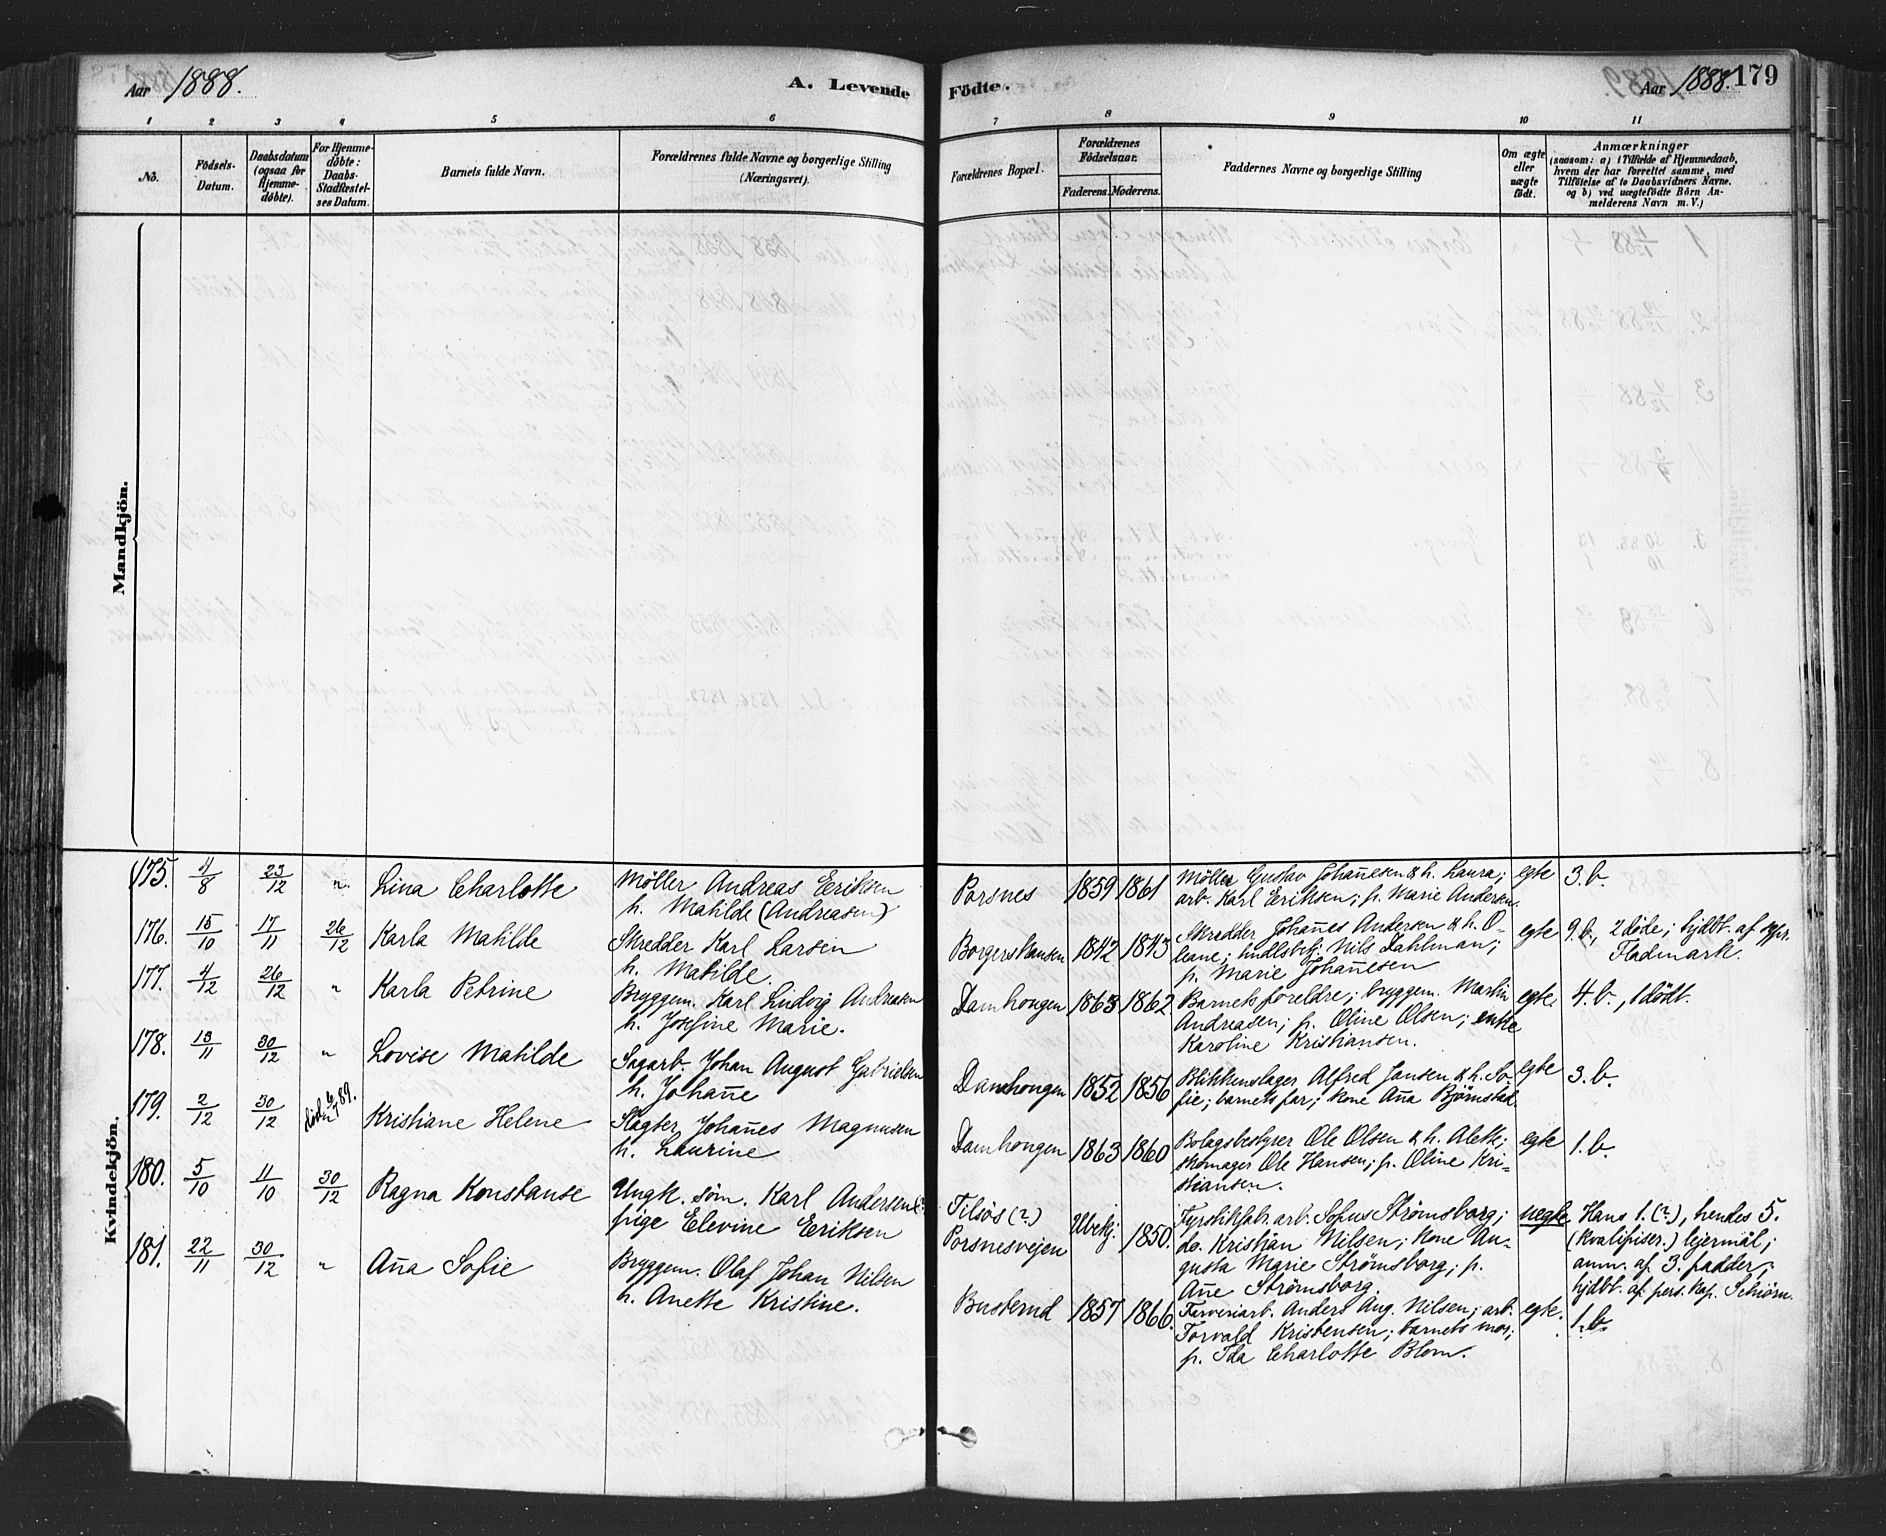 Aar 1888.
A. Levende Födte.
Aar 1888. 179
1 2 3 4 5 6 7 8 9 10 11
No.
Födsels-Datum.
Daabsdatum (ogsaa for Hjemme-döbte).
For Hjemme-döbte: Daabs-Stadfæstel-ses Datum.
Barnets fulde Navn.
Forældrenes fulde Navne og borgerlige Stilling (Næringsvei).
Forældrenes Bopæl.
Forældrenes Födselsaar.
Faderens. Moderens.
Faddernes Navne og borgerlige Stilling
Om ægte eller uægte födt.
Anmærkninger
(saasom: a) i Tilfælde af Hjemmedaab,
hvem der har forrettet samme, med
Tilföielse af to Daabsvidners Navne,
og b) ved uægtefödte Börn An-
melderens Navn m. V.)
Mandkjön.
Kvindekjön.
175. 4/8 23/12 " Lina Charlotte
Møller Andreas Eriksen
h. Matilde (Andreasen)
Porsnes 1859 1861
Møller Gustav Johan̄esen & h. Laura;
arb. Karl Eriksen; p. Marie Andersen.
egte 3. b.
176. 15/10 17/11 26/12 Karla Matilde
Skredder Karl Larsen
h. Matilde.
Borgershausen 1842 1843
Skredder Johan̄es Andersen & h. O-
leane; hndlsbtj. Nils Dahlman;
p. Marie Johan̄esen
egte 9. b., 2 døde; hjdbt. af
Fladmark.
177. 4/12 26/12 " Karla Petrine
Bryggem. Karl Ludvig Andreasen
h. Josefine Marie.
Damhougen 1863 1862
Barnets foreldre; bryggem. Martin
Andreasen; p. Oline Olsen; enke
Karoline Kristiansen.
egte 4. b., 1 dødt.
178. 13/11 30/12 " Lovise Matilde
Sagarb. Johan August Gabrielsen
h. Johan̄e
Damhougen 1852 1856
Blikkenslager Alfred Jansen & h. So-
fie; barnets far; kone An̄a Bjørnstad.
egte 3. b.
179. 2/12 30/12 død 6/7 89. Kristiane Helene
Slagter Johan̄es Magnusen
h. Laurine
Damhougen 1863 1860
Bolagsbestyrer Ole Olsen & h. Alette;
skomager Ole Hansen; p. Oline Kri-
stiansen.
egte 1. b.
180. 5/10 11/10 30/12 Ragna Konstanse
Ungk. søm. Karl Andersen &
pige Elevine Eriksen
Tilsøs (?)
Porsnesvejen Ubekj. 1850.
Fyrstikfabr. arb. Sofus Strømsborg;
do. Kristian Nilsen; kone Au-
gusta Marie Strømsborg; p.
An̄e Strømsborg.
uegte Hans 1. (?), hendes 5.
(kvalifiser.) lejermål;
anm. af 3. fadder;
hjdbt. af pers. kap. Schiørn.
181. 22/11 30/12 " An̄a Sofie
Bryggem. Olaf Johan Nilsen
h. Anette Kristine.
Busterud 1857 1866.
Farveriarb. Anders Aug. Nilsen; arb.
Torvald Kristensen; barnets mor;
p. Ida Charlotte Blom.
egte. 1. b.